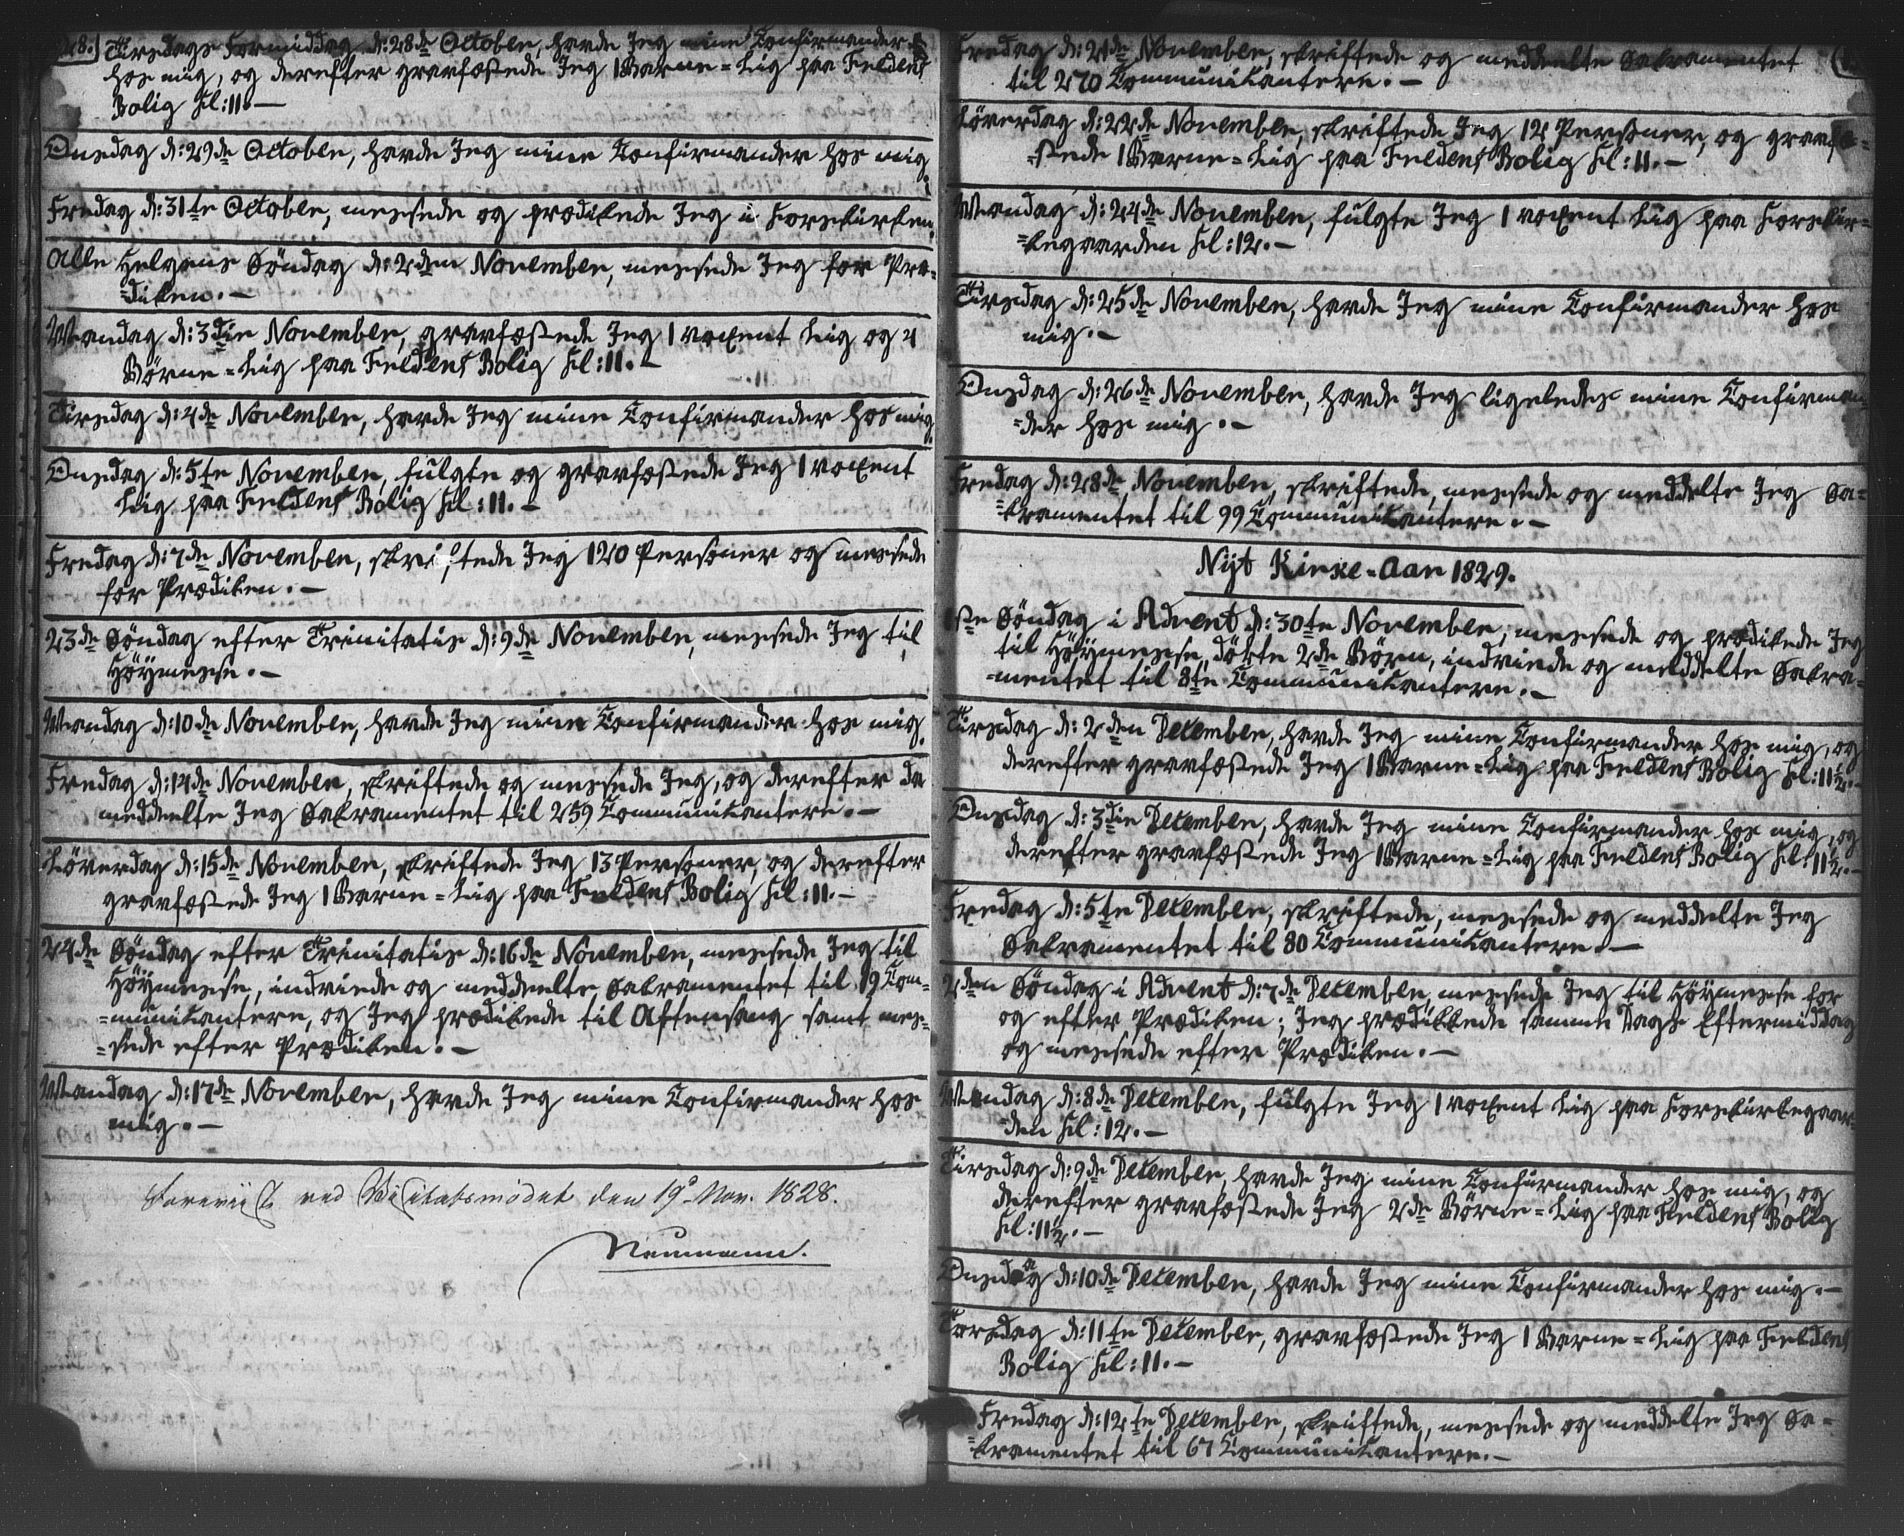 28.) Tirsdags Formiddag d: 28de October, havde Jeg mine Confirmander
hos mig, og derefter gravfæstede Jeg 1 Barne-Lig paa Fieldens
Bolig Kl: 11.—
Onsdag d: 29de October, havde Jeg mine Confirmander hos mig.
Fredag d: 31te October, messede og prædikede Jeg i Korskirken.
Alle Helgens Söndag d: 2den November, messede Jeg for Præ-
=diken.—
Mandag d: 3die November, gravfæstede Jeg 1 voxent Lig og 4
Börne-Lig paa Fieldens Bolig Kl: 11.—
Tirsdag d: 4de November, havde Jeg mine Confirmander hos mig.
Onsdag d: 5te November, fulgte og gravfæstede Jeg 1 voxent
Lig paa Fieldens Bolig Kl: 11.—
Fredag d: 7de November, skriftede Jeg 120 Personer og messede
for Prædiken.—
23de Söndag efter Trinitatis d: 9de November, messede Jeg til
Höymesse.—
Mandag d: 10de November, havde Jeg mine Confirmander hos mig.
Fredag d: 14de November, skriftede og messede Jeg, og derefter da
meddeelte Jeg Sakramentet til 259 Communikantere.—
Löverdag d: 15de November, skriftede Jeg 13 Personer, og derefter
gravfæstede Jeg 1 Barne-Lig paa Fieldens Bolig Kl: 11.—
24de Söndag efter Trinitatis d: 16de November, messede Jeg til
Höymesse, indviede og meddeelte Sakramentet til 19 Com-
=munikantere, og Jeg prædikede til Aftensang samt mes-
=sede efter Prædiken.—
Mandag d: 17de November, havde Jeg mine Confirmander hos
mig.—
Foreviist ved Visitatsmödet den 19de Nov. 1828.
Neumann.
Fredag d: 21de November, skriftede og meddeelte Sakramentet
til 270 Communikantere.—
Löverdag d: 22de November, skriftede Jeg 12 Personer, og gravfæ-
=stede 1 Barne-Lig paa Fieldens Bolig Kl: 11.—
Mandag d: 24de November, fulgte Jeg 1 voxent Lig paa Korskir-
=kegaarden Kl: 12.—
Tirsdag d: 25de November, havde Jeg mine Confirmander hos
mig.—
Onsdag d: 26de November, havde Jeg ligeledes mine Confirman-
=der hos mig.—
Fredag d: 28de November, skriftede, messede og meddelte Jeg Sa-
=kramentet til 99 Communikantere.—
Nyt Kirke-Aar 1829.
1ste Söndag i Advent d: 30te November, messede og prædikede Jeg
til Höymesse, döbte 2de Börn, indviede og meddelte Sakra-
=mentet til 8te Communikantere.—
Tirsdag d: 2den December, havde Jeg mine Confirmander hos mig, og
derefter gravfæstede Jeg 1 Barne-Lig paa Fieldens Bolig Kl: 11½.—
Onsdag d: 3die December, havde Jeg mine Confirmander hos mig, og
derefter gravfæstede Jeg 1 Barne-Lig paa Fieldens Bolig Kl: 11½.—
Fredag d: 5te December, skriftede, messede og meddelte Jeg
Sakramentet til 80 Communikantere.—
2den Söndag i Advent d: 7de December, messede Jeg til Höymesse for
og efter Prædiken; Jeg prædikede samme Dags Eftermiddag
og messede efter Prædiken.—
Mandag d: 8de December, fulgte Jeg 1 voxent Lig paa Korskirkegaar-
den Kl: 12.—
Tirsdag d: 9de December, havde Jeg mine Confirmander hos mig, og
derefter gravfæstede Jeg 2de Börne-Lig paa Fieldens Bolig
Kl: 11½.—
Onsdag d: 10de December, havde Jeg mine Confirmander hos mig.—
Torsdag d: 11te December, gravfæstede Jeg 1 Barne-Lig paa Fieldens
Bolig Kl: 11.—
Fredag d: 12te December, skriftede, messede og meddelte Jeg Sa-
=kramentet til 67 Communikantere.—